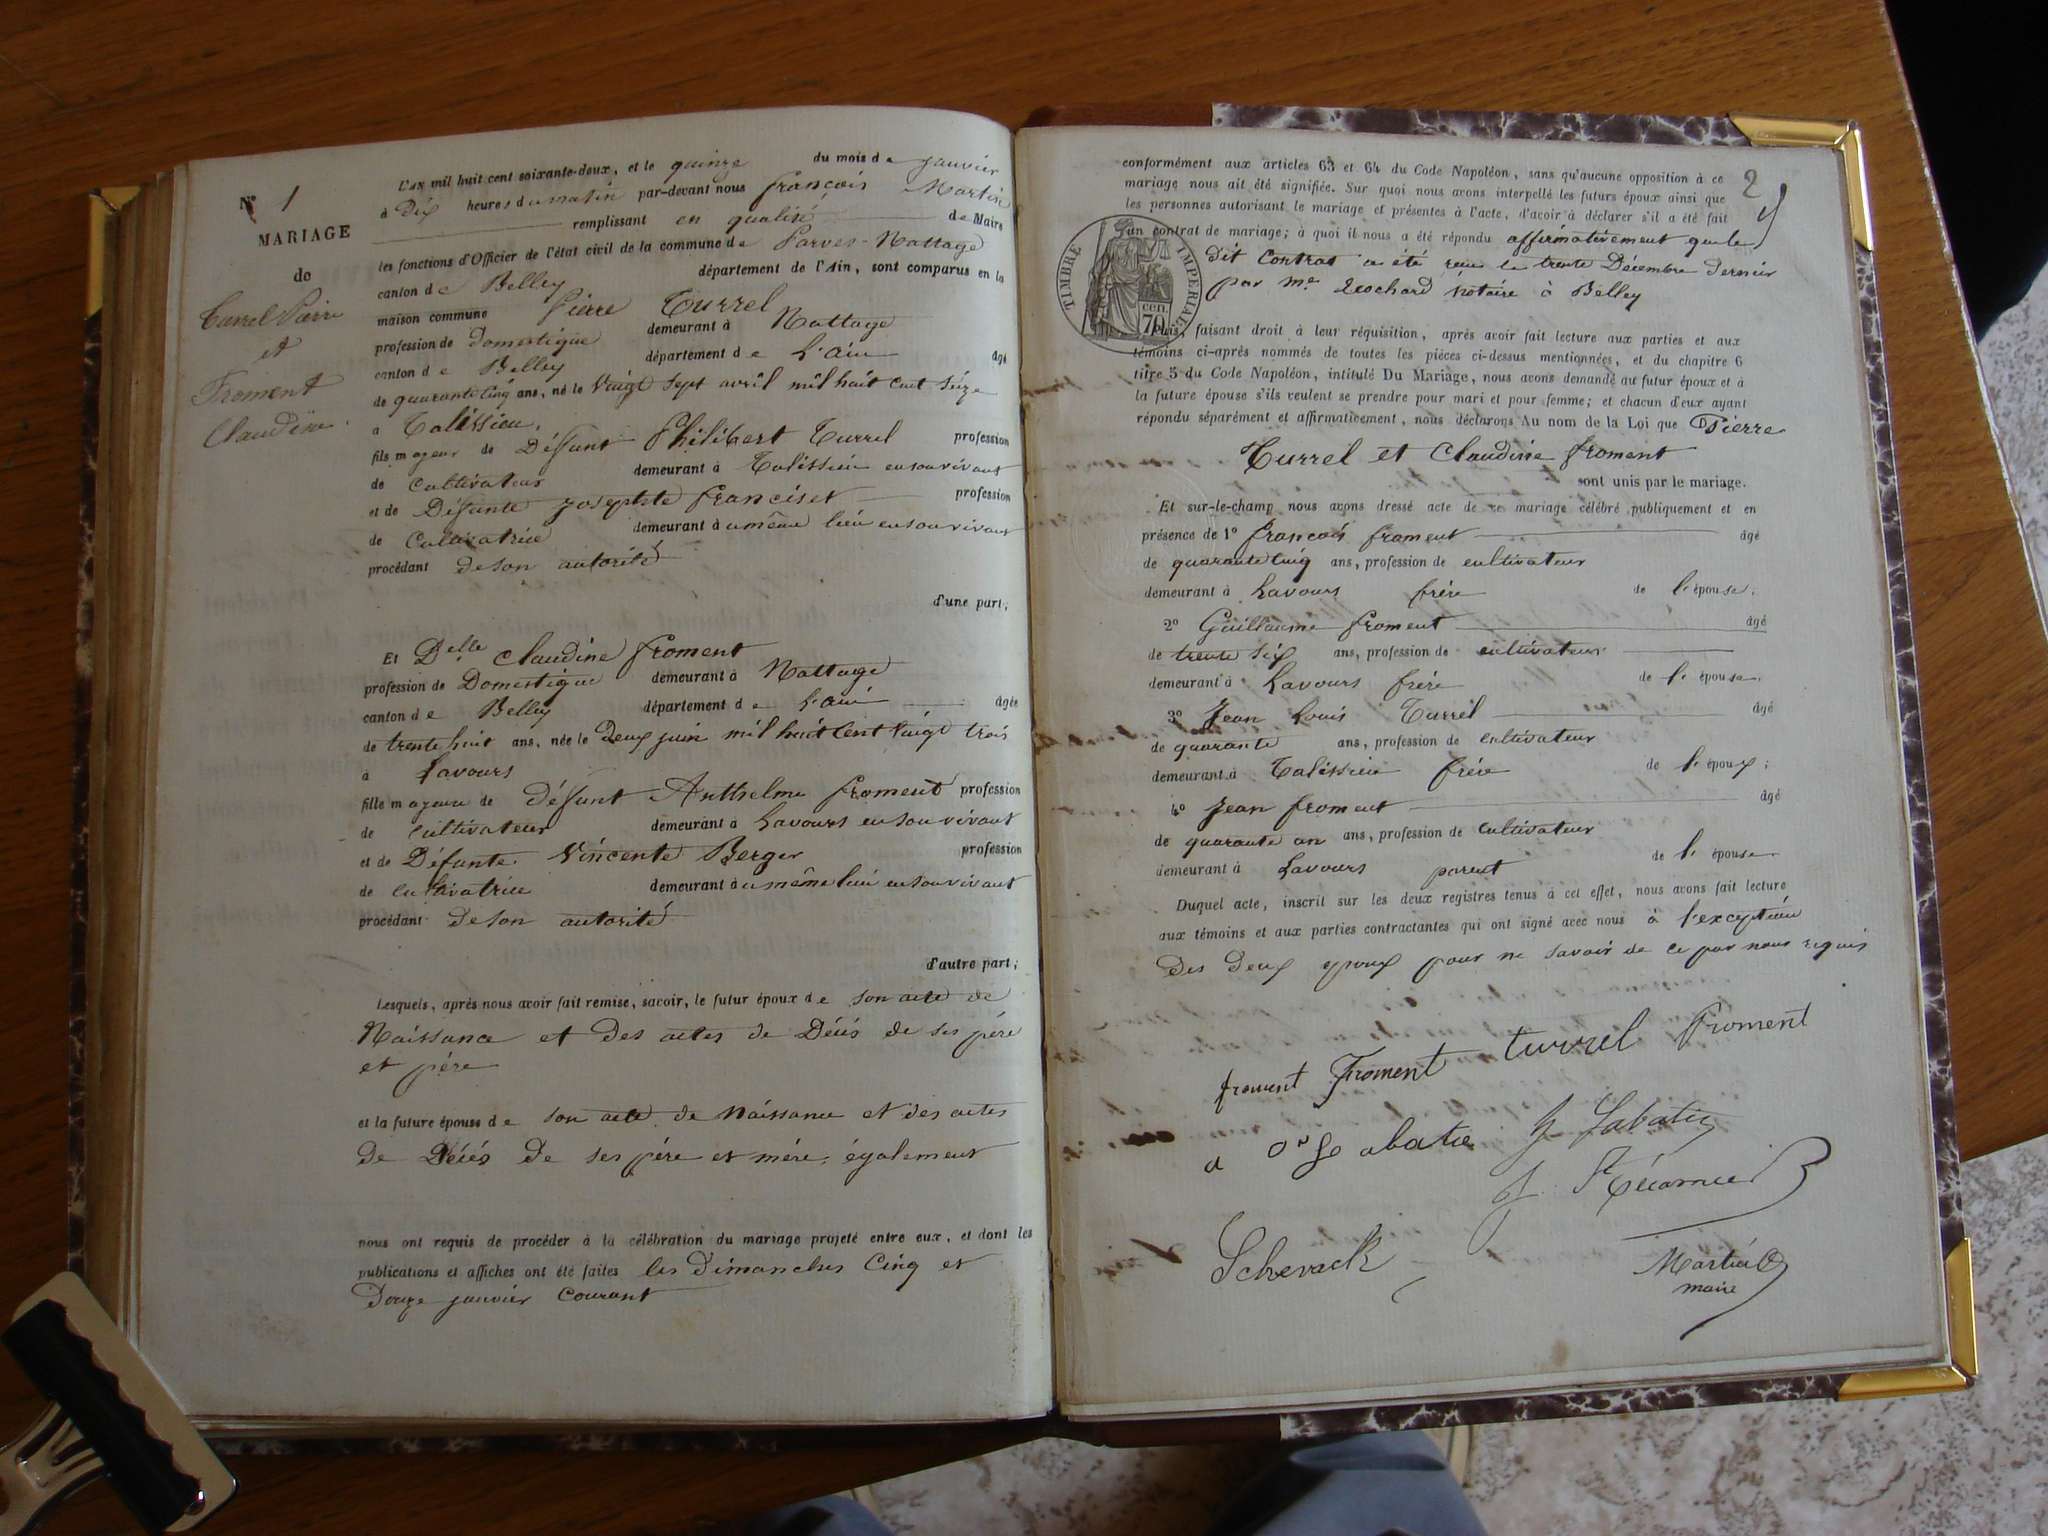 N° 1
MARIAGE
de
Turrel Pierre
et
Froment
Claudine
L'AN mil huit cent soixante-deux, et le quinze du mois de janvier
à Dix heures du matin par-devant nous françois Martin
remplissant en qualité de Maire
les fonctions d'Officier de l'état civil de la commune de Parves-Nattage
canton de Belley département de l'Ain, sont comparus en la
maison commune Pierre Turrel
profession de domestique demeurant à Nattage
canton de Belley département de L'ain âgé
de quarante Cinq ans, né le Vingt Sept avril mil huit cent Seize
à Talissieu.
fils majeur de Défunt Philibert Turrel profession
de Cultivateur demeurant à Talissieu en son vivant
et de Défunte josephte franciset profession
de Cultivatrice demeurant au même lieu en son vivant
procédant de son autorité
d'une part;
Et Delle Claudine froment
profession de Domestique demeurant à Nattage
canton de Belley département de L'ain âgée
de trente huit ans, née le Deux juin mil huit Cent Vingt trois
à Lavours
fille majeure de défunt Anthelme froment profession
de cultivateur demeurant à Lavours en son vivant
et de Défunte Vincente Berger profession
de cultivatrice demeurant au même lieu en son vivant
procédant de son autorité
d'autre part;
Lesquels, après nous avoir fait remise, savoir, le futur époux de son acte de
Naissance et des actes de Décés de ses pére
et pére
et la future épouse de son acte de Naissance et des actes
de Décés de ses pére et mére, également
nous ont requis de procéder à la célébration du mariage projeté entre eux, et dont les
publications et affiches ont été faites les Dimanches Cinq et
Douze janvier Courant
2
conformément aux articles 63 et 64 du Code Napoléon, sans qu'aucune opposition à ce
mariage nous ait été signifiée. Sur quoi nous avons interpellé les futurs époux ainsi que
les personnes autorisant le mariage et présentes à l'acte, d'avoir à déclarer s'il a été fait
un contrat de mariage; à quoi il nous a été répondu affirmativement que le
dit Contrat a été reçu le trente Décembre dernier
par Me Rochard Notaire à Belley
TIMBRE IMPERIAL
70 cen.
Puis, faisant droit à leur réquisition, après avoir fait lecture aux parties et aux
témoins ci-après nommés de toutes les pièces ci-dessus mentionnées, et du chapitre 6
titre 5 du Code Napoléon, intitulé Du Mariage, nous avons demandé au futur époux et à
la future épouse s'ils veulent se prendre pour mari et pour femme; et chacun d'eux ayant
répondu séparément et affirmativement, nous déclarons Au nom de la Loi que Pierre
Turrel et Claudine froment
sont unis par le mariage.
Et sur-le-champ nous avons dressé acte de ce mariage célébré publiquement et en
présence de 1° françois froment âgé
de quarante Cinq ans, profession de cultivateur
demeurant à Lavours frére de l'épouse;
2° Guillaume froment âgé
de trente six ans, profession de cultivateur
demeurant à Lavours frére de l'épouse.
3° Jean Louis Turrel âgé
de quarante ans, profession de cultivateur
demeurant à Talissieu frére de l'époux;
4° Jean froment âgé
de quarante un ans, profession de Cultivateur
demeurant à Lavours parent de l'épouse.
Duquel acte, inscrit sur les deux registres tenus à cet effet, nous avons fait lecture
aux témoins et aux parties contractantes qui ont signé avec nous à l'exception
des deux époux pour ne savoir de ce par nous requis
froment Froment turrel froment
abatie J Sabatier
Martin
maire